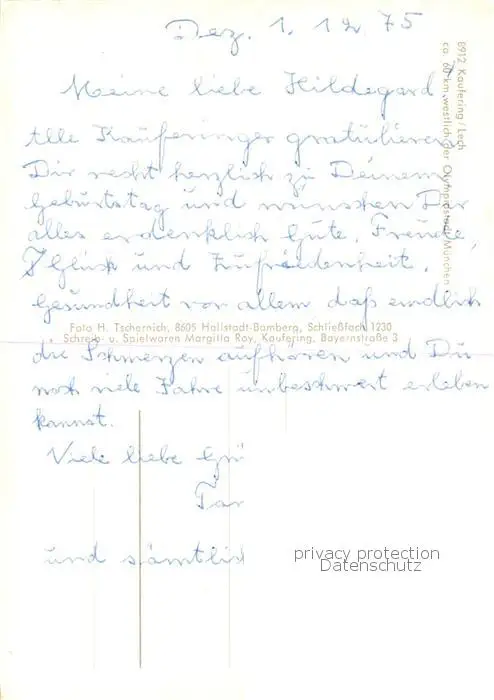 Dez. 1. 12 75
Meine liebe Hildegard
Alle Kauferinger gratulieren
Dir recht herzlich zu Deinem
Geburtstag und wünschen Dir
alles erdenklich Gute, Freude,
Glück und Zufriedenheit,
Gesundheit vor allem daß endlich
Foto H. Tschernich, 8605 Hallstadt-Bamberg, Schließfach 1230
Schreib- u. Spielwaren Margitta Ray, Kaufering, Bayernstraße 3
die Schmerzen aufhören und Du
noch viele Jahre unbeschwert erleben
kannst.
Viele liebe Grü
Tan
und sämtlich
8912 Kaufering/Lech
ca. 60 km westlich der Olympiastadt München
privacy protection
Datenschutz